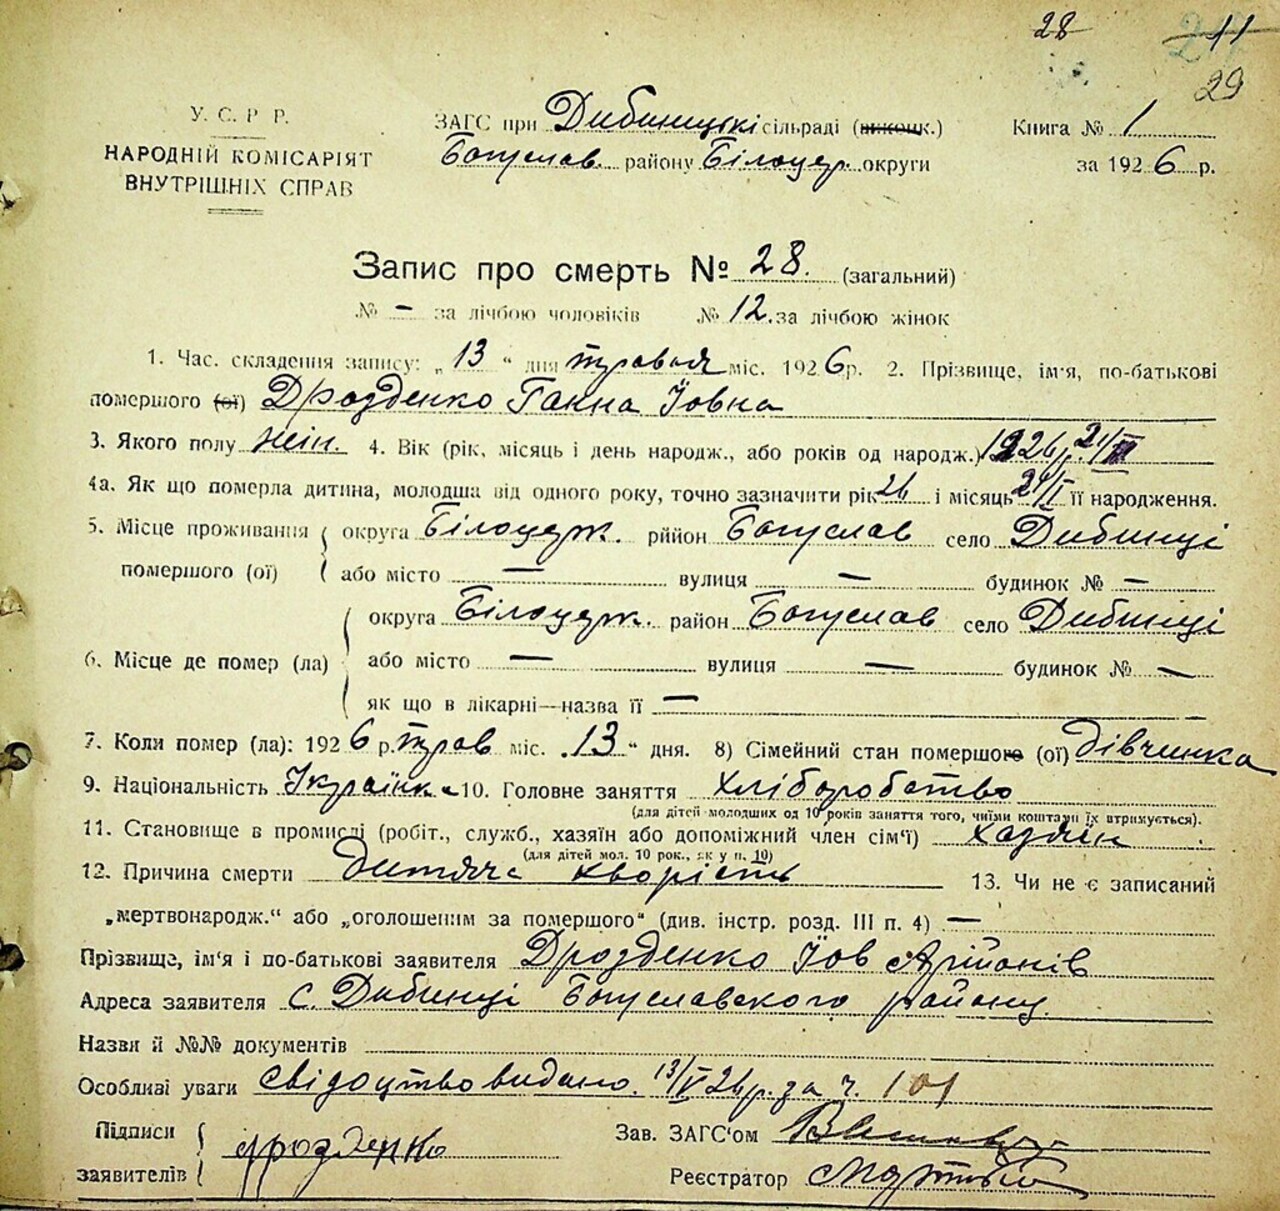 28 11
29
У. С. Р Р.
НАРОДНІЙ КОМІСАРІЯТ
ВНУТРІШНІХ СПРАВ
ЗАГС при Дибинцькі сільраді (виконк.)
Богуслав. району Білоцер. округи
Книга № 1
за 1926 р.
Запис про смерть № 28. (загальний)
№ — за лічбою чоловіків № 12. за лічбою жінок
1. Час. складення запису: „13" дня травня міс. 1926 р. 2. Прізвище, ім'я, по-батькові
помершого (ої) Дрозденко Ганна Йовна
3. Якого полу жін. 4. Вік (рік, місяць і день народж., або років од народж.) 1926р.
4а. Як що померла дитина, молодша від одного року, точно зазначити рік 26 і місяць її народження.
5. Місце проживання помершого (ої) округа Білоцерк. рййон Богуслав село Дибинці
або місто — вулиця — будинок № —
6. Місце де помер (ла) округа Білоцерк. район Богуслав село Дибинці
або місто — вулиця — будинок № —
як що в лікарні—назва її —
7. Коли помер (ла): 1926 р. трав міс. „13" дня. 8) Сімейний стан помершого (ої) дівчинка
9. Національність Українка 10. Головне заняття хліборобство
(для дітей молодших од 10 років заняття того, чиїми коштами їх втримується).
11. Становище в промислі (робіт., служб., хазяїн або допоміжний член сім'ї) хазяїн
(для дітей мол. 10 рок., як у п. 10)
12. Причина смерти дитяча хворість 13. Чи не є записаний
„мертвонародж." або „оголошеним за помершого" (див. інстр. розд. III п. 4) —
Прізвище, ім'я і по-батькові заявителя Дрозденко Йов
Адреса заявителя с. Дибинці Богуславского району
Назви й №№ документів
Особливі уваги свідоцтво видано. 13/V 26 р. за ч. 101
Підписи
заявителів Дрозденко
Зав. ЗАГС'ом
Реєстратор